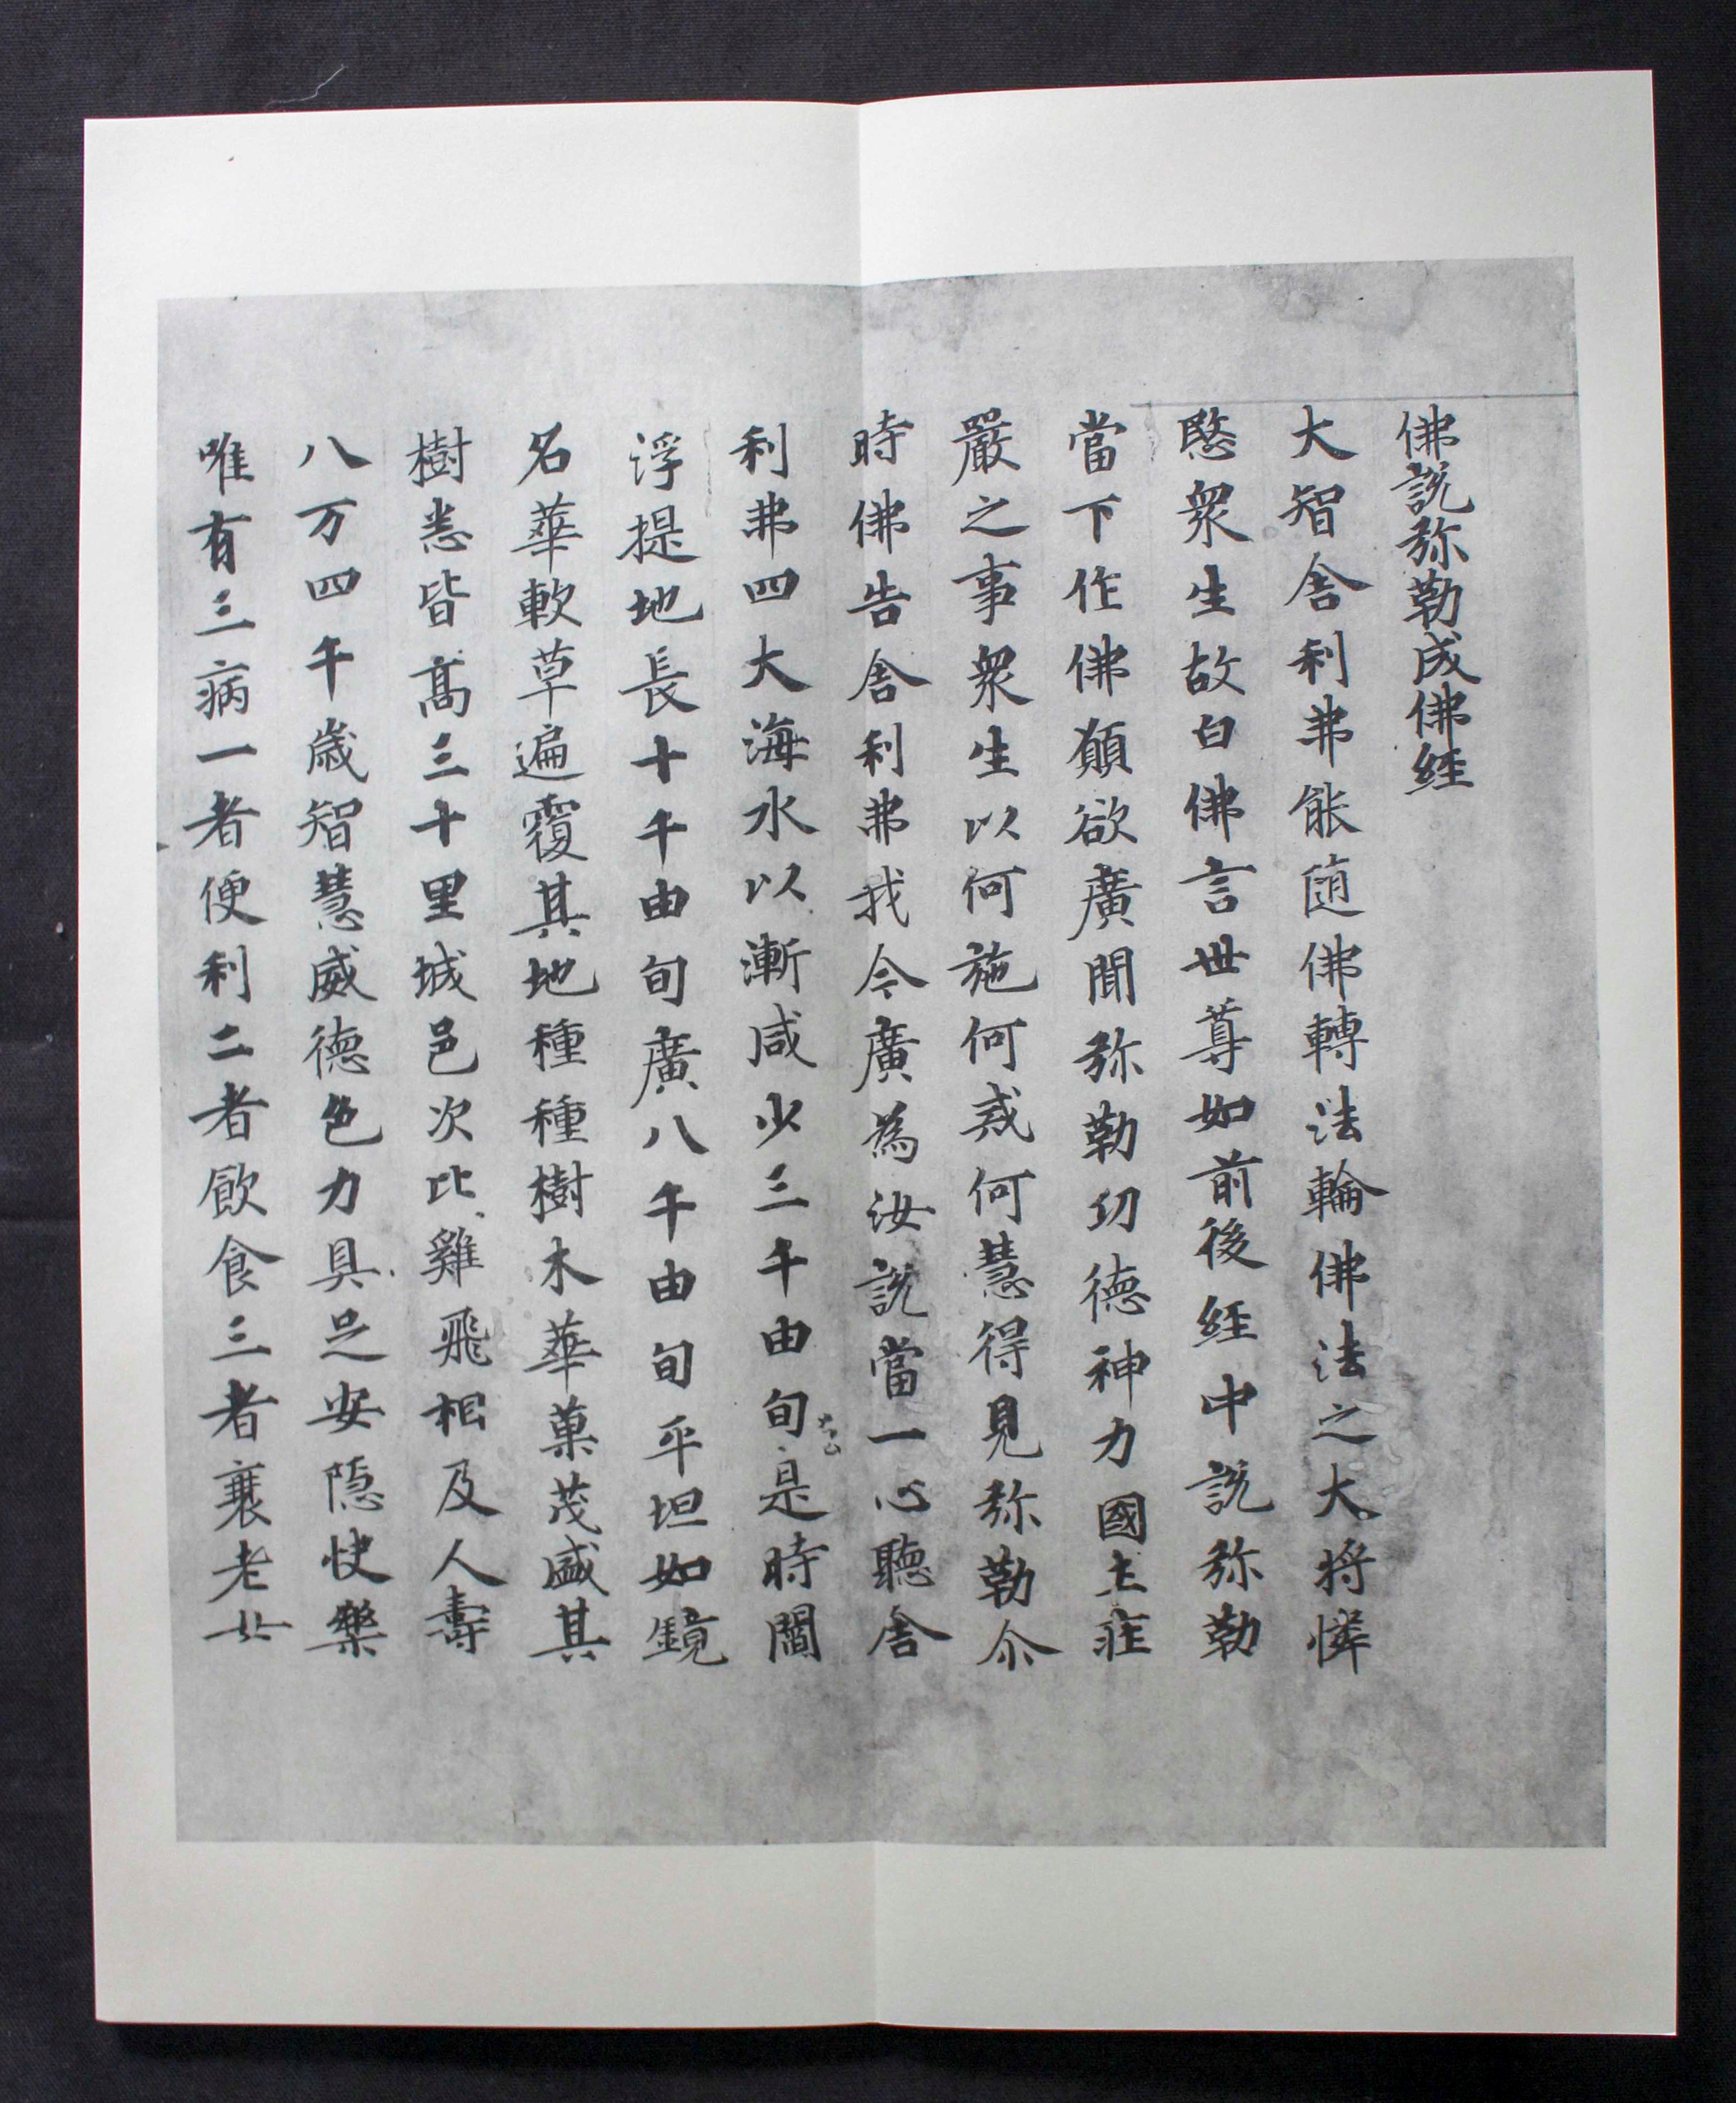 佛說弥勒成佛經
大智舎利弗能隨佛轉法輪佛法之大将憐
愍衆生故白佛言世尊如前後經中說弥勒
當下作佛願欲廣聞弥勒功德神力國土莊
嚴之事衆生以何施何戒何慧得見弥勒尒
時佛告舎利弗我今廣為汝說當一心聽舎
利弗四大海水以漸咸少三千由旬是時閻
浮提地長十千由旬廣八千由旬平坦如鏡
名華軟草遍覆其地種種樹木華菓茂盛其
樹悉皆髙三十里城邑次比雞飛相及人壽
八万四千歲智慧威德色力具足安隱快樂
唯有三病一者便利二者飲食三者衰老女